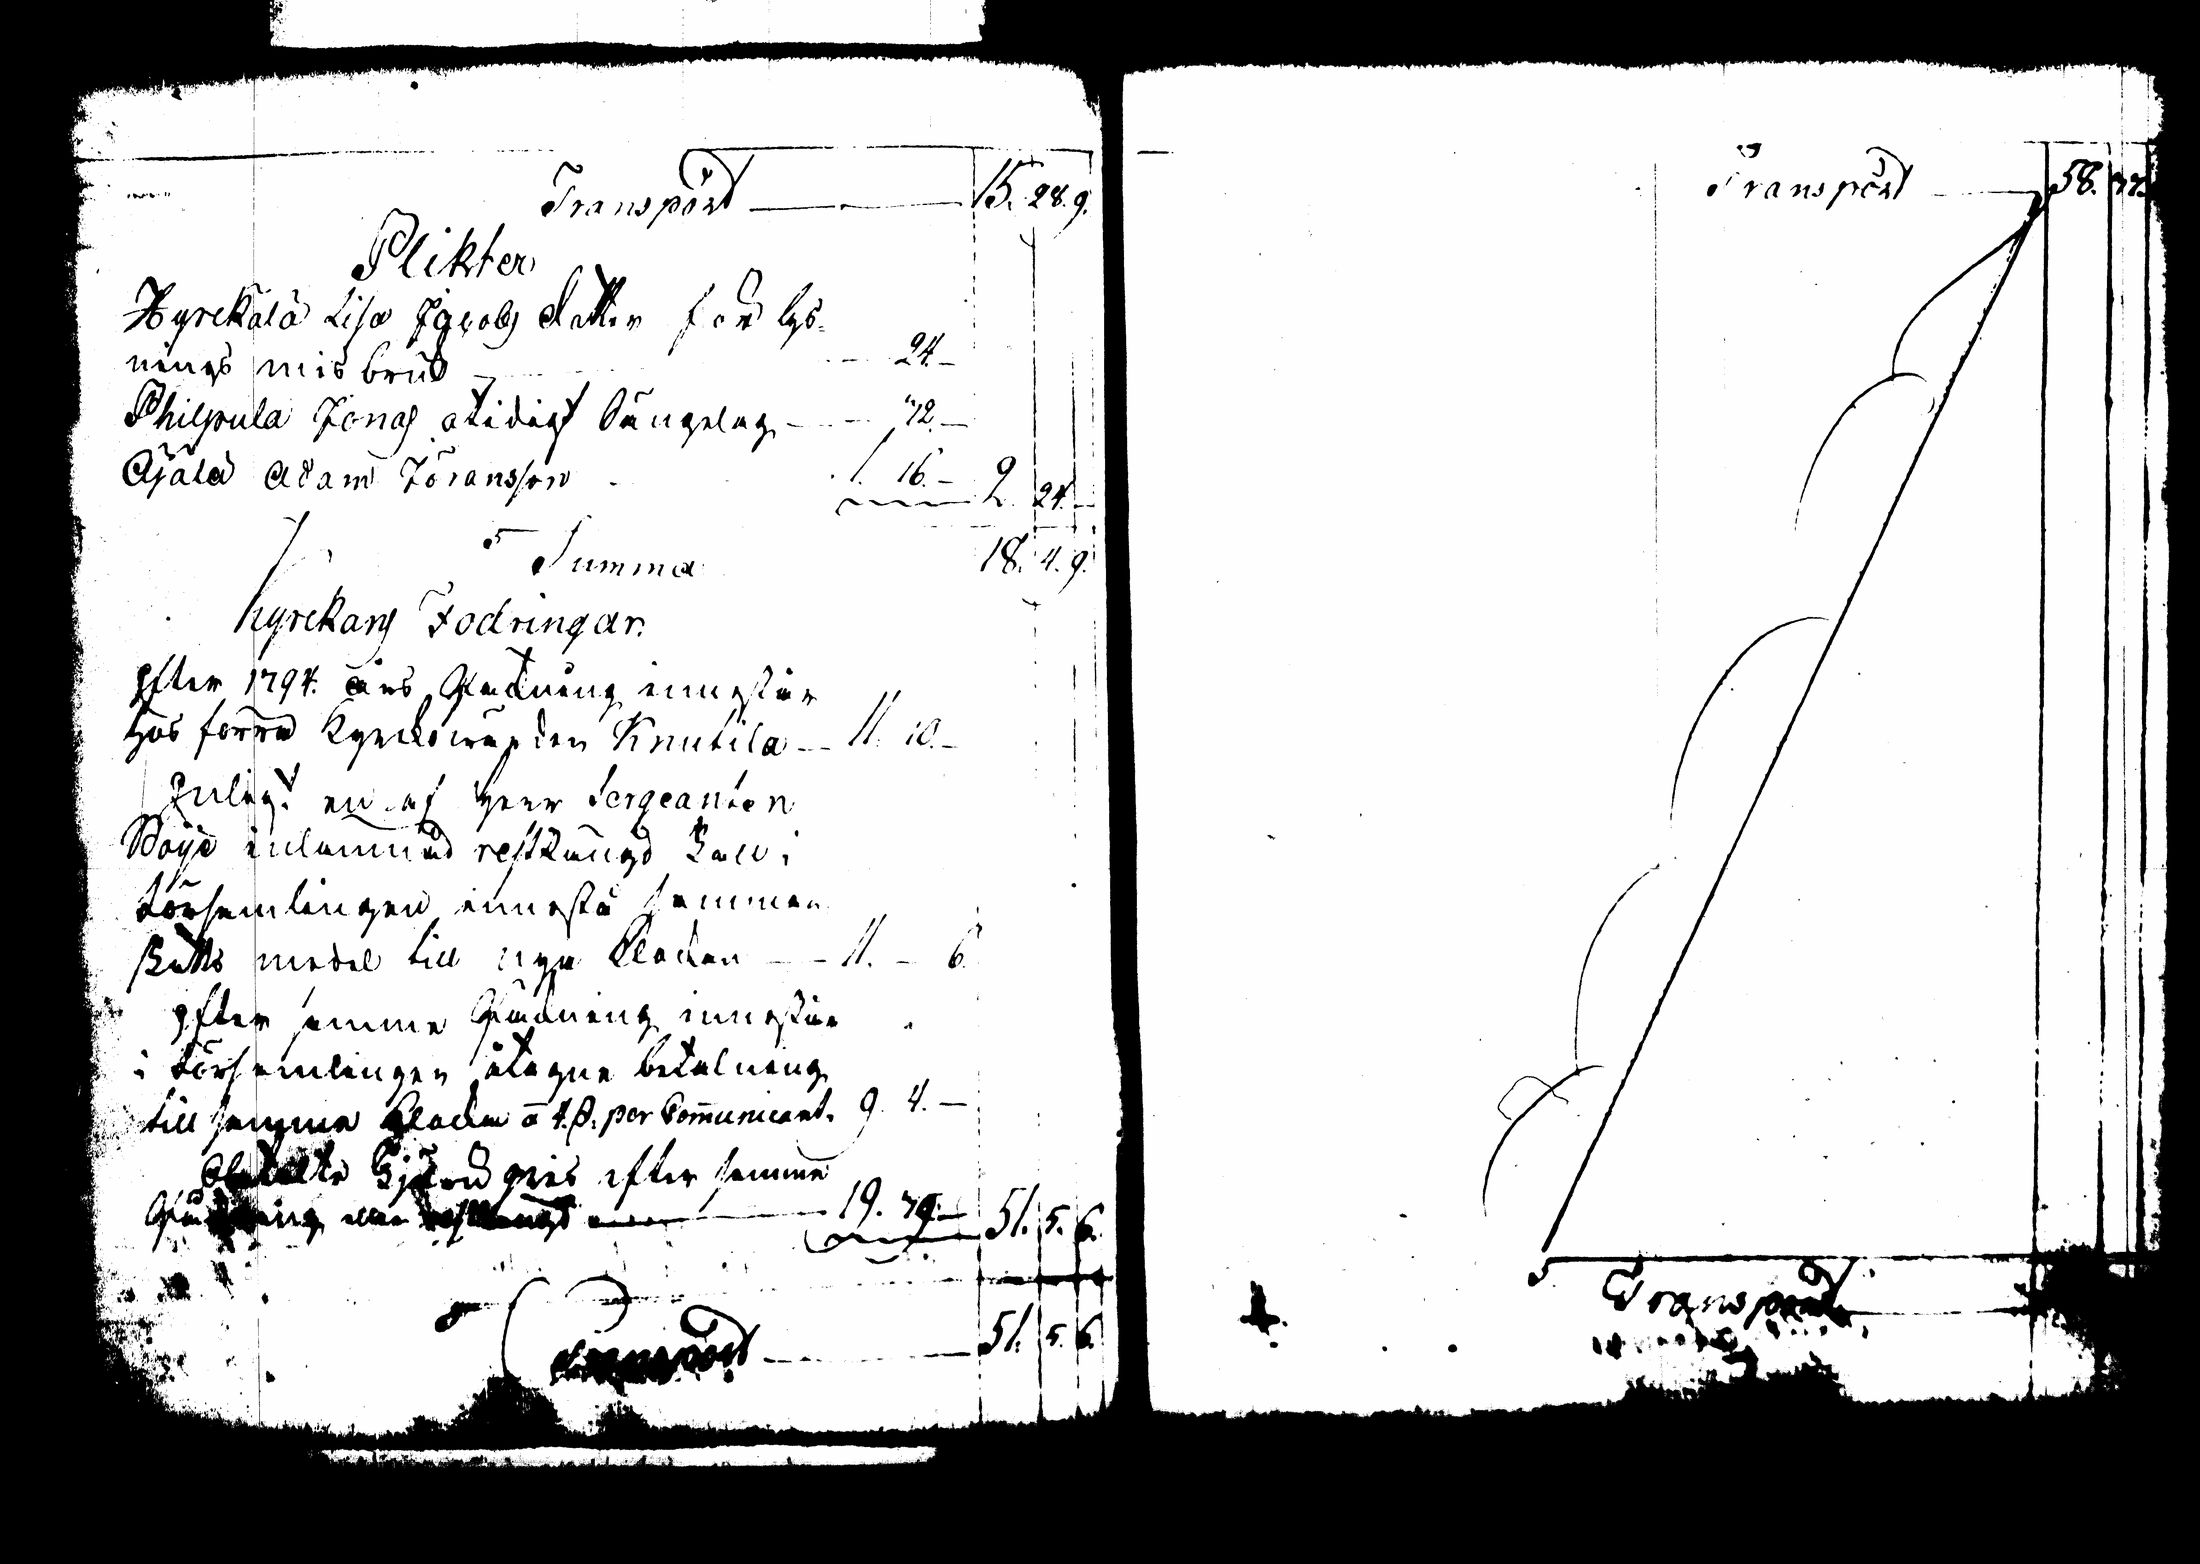 Transport 15. 28. 9.
Plikter
Hyrckälä Lisa Jacobs dotter för lys-
nings misbruk 24. -
Philpula Jonas otidigt Sängelag 12. -
Ajälä Adam Göransson 1. 16. - 2. 24. -
Summa 18. 4. 9.
Kyrckans Fodringar.
Efter 1794. års Räkning innestår
hos förra Kyrckowärden Knutila 11. 10. -
Enligt en af Herr Sergeanten
Boije inlämnad restlängd skall i
församlingen innestå samman
skotts medel till nya Klockan 11. - 6.
Efter samme Räkning innestår
i församlingen åtagne betalning
till samma Klocka a 4. s. per Communicant. 9. 4. -
efter samme
Räkning 19. 51. 5. 6.
Transport 51. 5. 6.
Transport 58.
Transport